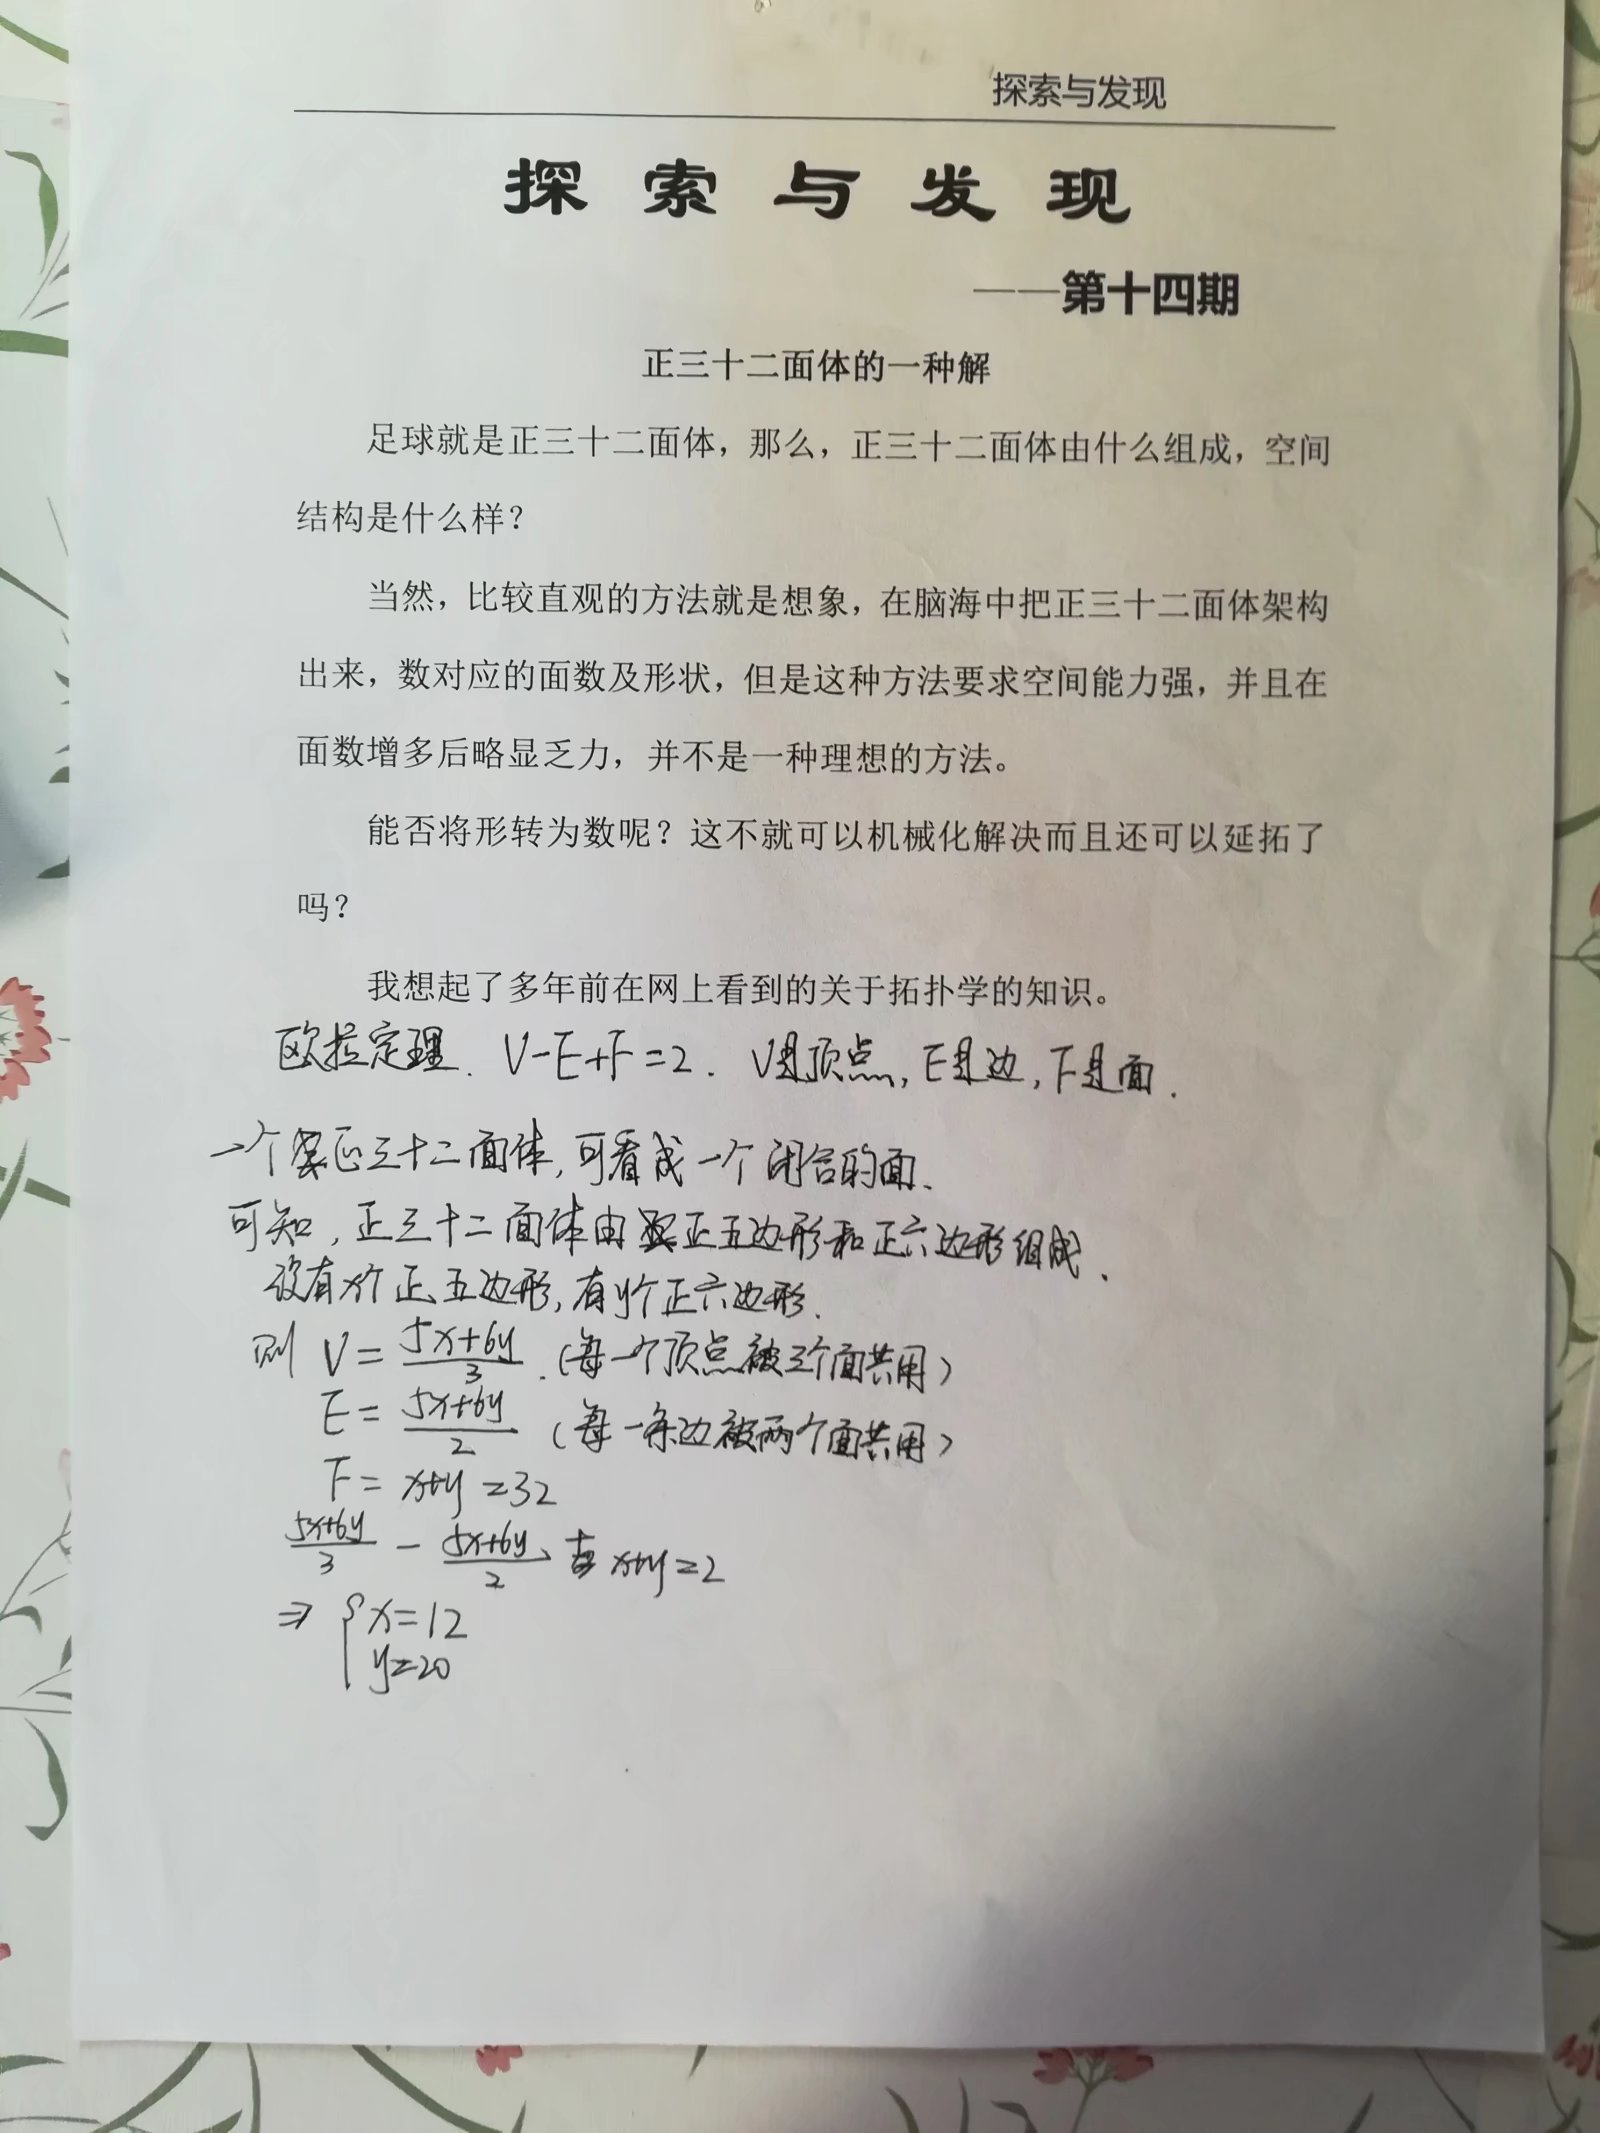 探索与发现
探索与发现
——第十四期
正三十二面体的一种解
足球就是正三十二面体，那么，正三十二面体由什么组成，空间
结构是什么样？
当然，比较直观的方法就是想象，在脑海中把正三十二面体架构
出来，数对应的面数及形状，但是这种方法要求空间能力强，并且在
面数增多后略显乏力，并不是一种理想的方法。
能否将形转为数呢？这不就可以机械化解决而且还可以延拓了
吗？
我想起了多年前在网上看到的关于拓扑学的知识。
欧拉定理. V-E+F=2. V是顶点, E是边, F是面.
一个正三十二面体, 可看成一个闭合的面.
可知, 正三十二面体由正五边形和正六边形组成.
设有x个正五边形, 有y个正六边形.
则 V = (5x+6y)/3. (每一个顶点被三个面共用)
E = (5x+6y)/2 (每一条边被两个面共用)
F = x+y = 32
(5x+6y)/3 - (5x+6y)/2 + x+y = 2
⇒ { x=12
y=20